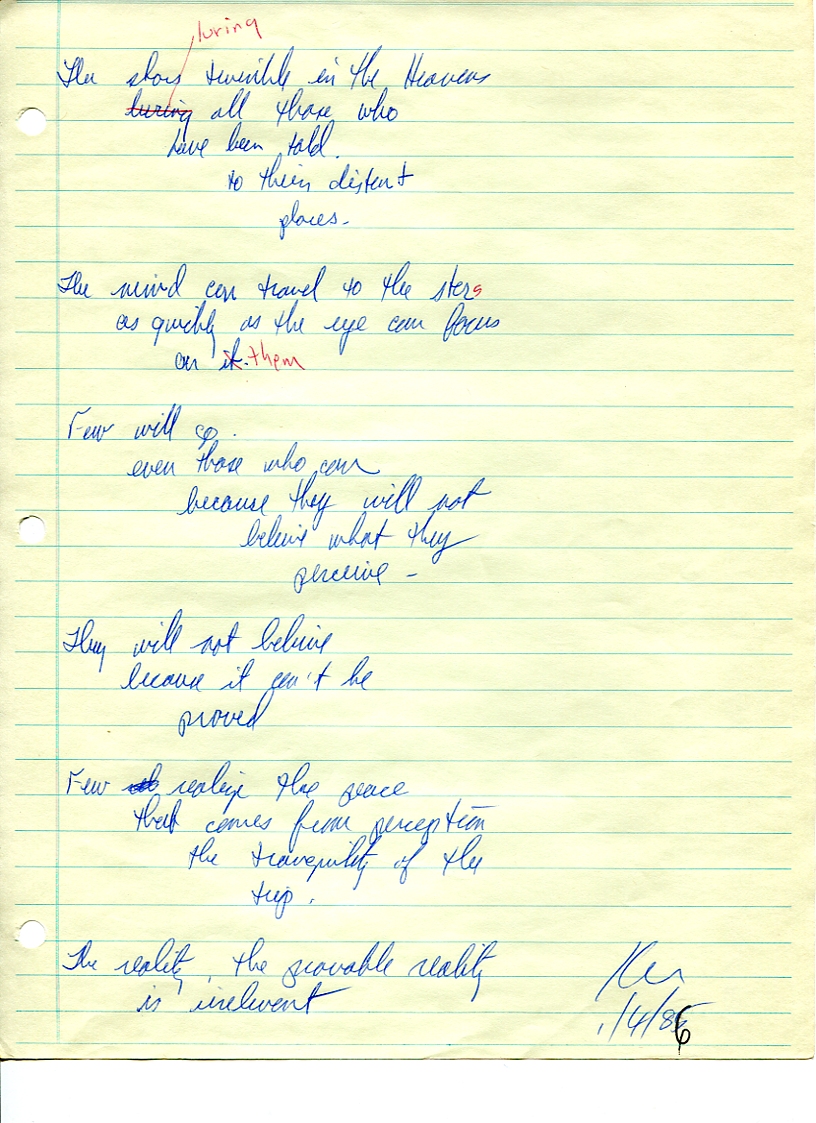 luring
The stars twinkle in the Heavens
luring all those who
have been told
to their distant
places.
The mind can travel to the stars
as quickly as the eye can focus
on it. them
Few will go.
even those who can
because they will not
believe what they
perceive -
They will not believe
because it can't be
proved
Few realize the peace
that comes from perception
the tranquility of the
trip.
The reality, the provable reality
is irrelevent
Ken
1/4/86